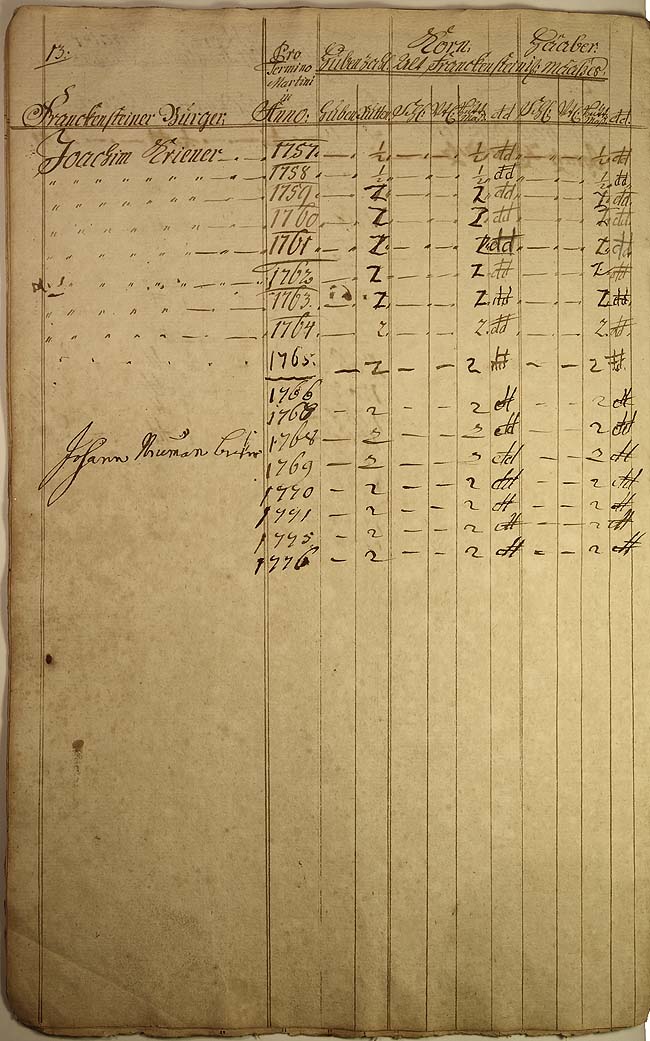 13.
Pro Termino Martini
Korn. Haaber.
Huben Zahl Alt Franckensteinisch Maaßes.
Franckensteiner Bürger. Anno. Huben Rutten Vrtl dd. Vrtl dd.
Joachim Kriener 1757. ½ ½ dd ½ dd
1758 ½ ½ dd ½ dd
1759 2 2 dd 2 dd
1760 2 2 dd 2 dd
1761 2 2 dd 2 dd
1762 2 2 dd 2 dd
1763 2 2 dd 2 dd
1764 2 2 dd 2 dd
1765 2 2 dd 2 dd
1766
1768 2 2 dd 2 dd
1768 2 2 dd 2 dd
Johann Neuman 1769 2 2 dd 2 dd
1770 2 2 dd 2 dd
1771 2 2 dd 2 dd
1775 2 2 dd 2 dd
1776 2 2 dd 2 dd